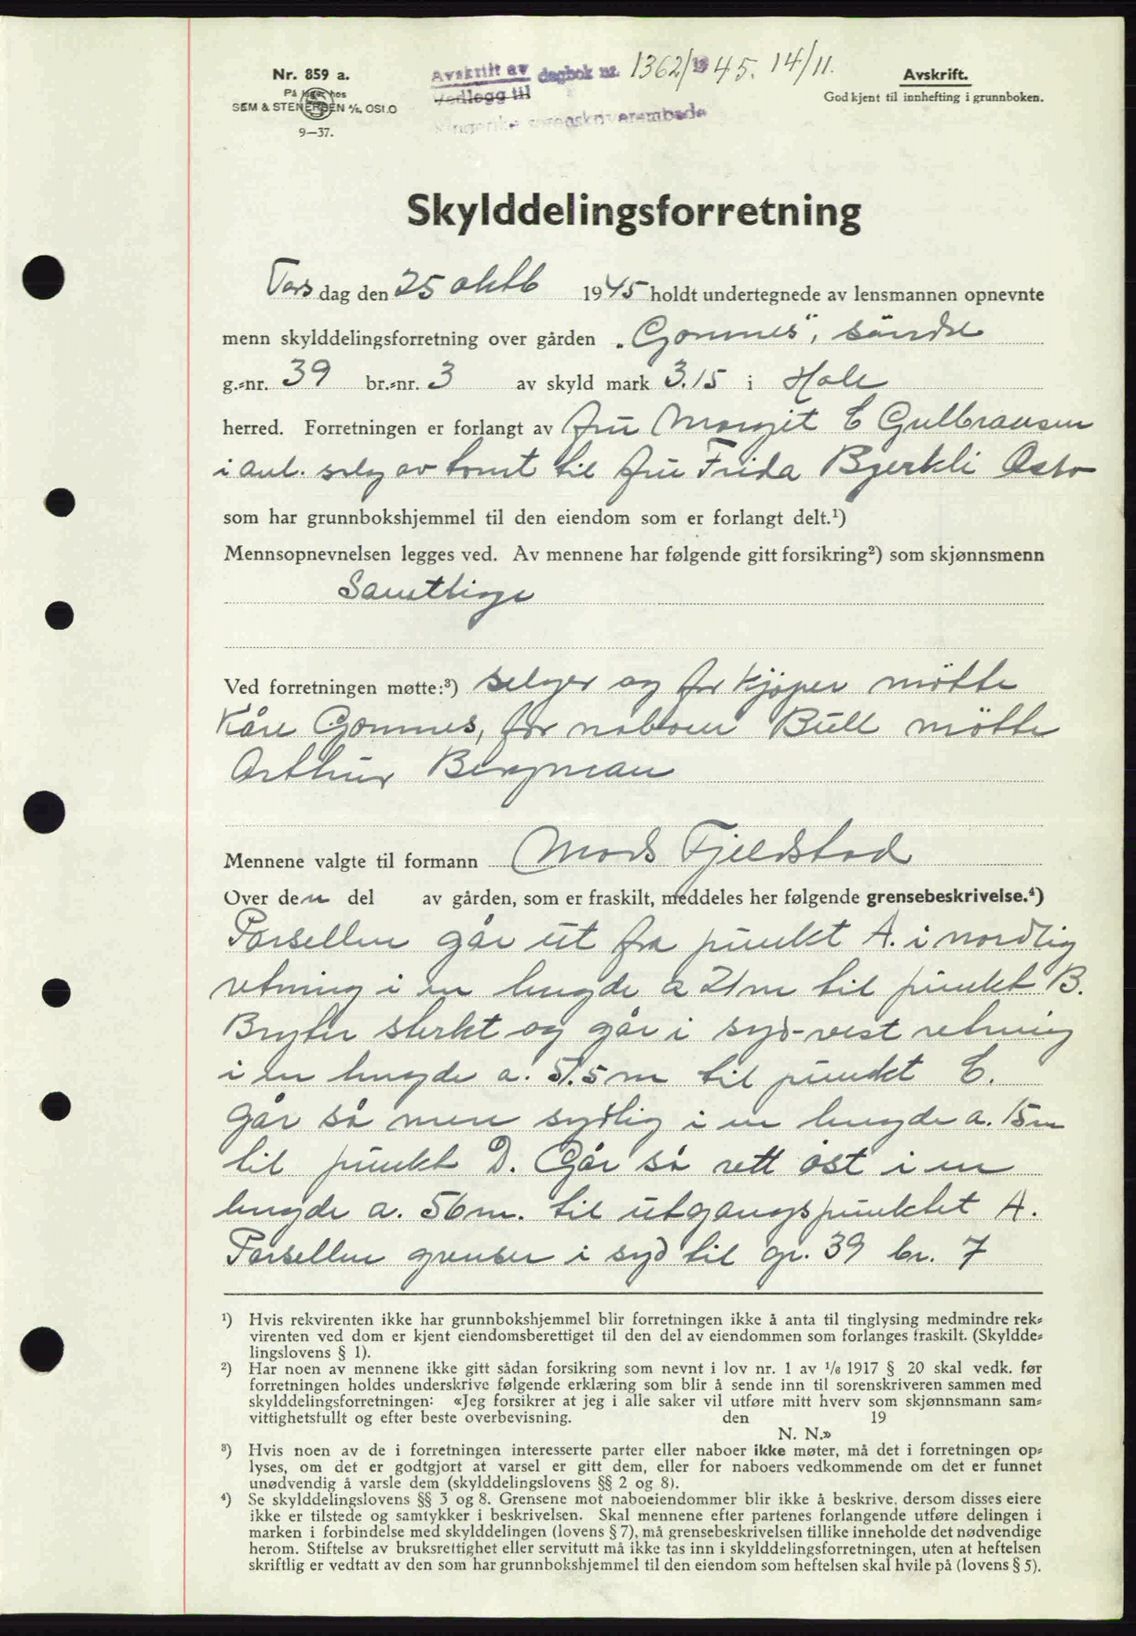 Nr. 859 a.
På lager hos
SEM & STENERSEN A/S, OSLO
9—37.
Avskrift av dagbok nr. 1362/1945. 14/11.
Vedlegg til
sorenskriverembede
Avskrift.
Godkjent til innhefting i grunnboken.
Skylddelingsforretning
Tors dag den 25 oktb 1945 holdt undertegnede av lensmannen opnevnte
menn skylddelingsforretning over gården „Gomnes", söndre
g.-nr. 39 br.-nr. 3 av skyld mark 3.15 i Hole
herred. Forretningen er forlangt av fru Margit E Gulbransen
i anl. salg av tomt til fru Frida Bjerkli Oslo
som har grunnbokshjemmel til den eiendom som er forlangt delt.¹)
Mennsopnevnelsen legges ved. Av mennene har følgende gitt forsikring²) som skjønnsmenn
Samtlige
Ved forretningen møtte:³) selger og for kjøper mötte
Kåre Gomnes, for naboen Bull mötte
Arthur Bergman
Mennene valgte til formann Mads Fjeldstad
Over den del av gården, som er fraskilt, meddeles her følgende grensebeskrivelse.⁴)
Parsellen går ut fra punkt A. i nordlig
retning i en lengde a 21m til punkt B.
Bryter sterkt og går i syd-vest retning
i en lengde a. 51.5m til punkt C.
Går så mer sydlig i en lengde a. 15m
til punkt D. Går så rett øst i en
lengde a. 56m. til utgangspunktet A.
Parsellen grenser i syd til gr. 39 br. 7
¹) Hvis rekvirenten ikke har grunnbokshjemmel blir forretningen ikke å anta til tinglysing medmindre rek-
virenten ved dom er kjent eiendomsberettiget til den del av eiendommen som forlanges fraskilt. (Skyldde-
lingslovens § 1).
²) Har noen av mennene ikke gitt sådan forsikring som nevnt i lov nr. 1 av ¹/₆ 1917 § 20 skal vedk. før
forretningen holdes underskrive følgende erklæring som blir å sende inn til sorenskriveren sammen med
skylddelingsforretningen: «Jeg forsikrer at jeg i alle saker vil utføre mitt hverv som skjønnsmann sam-
vittighetsfullt og efter beste overbevisning. den 19
N. N.»
³) Hvis noen av de i forretningen interesserte parter eller naboer ikke møter, må det i forretningen op-
lyses, om det er godtgjort at varsel er gitt dem, eller for naboers vedkommende om det er funnet
unødvendig å varsle dem (skylddelingslovens §§ 2 og 8).
⁴) Se skylddelingslovens §§ 3 og 8. Grensene mot naboeiendommer blir ikke å beskrive, dersom disses eiere
ikke er tilstede og samtykker i beskrivelsen. Skal mennene efter partenes forlangende utføre delingen i
marken i forbindelse med skylddelingen (lovens § 7), må grensebeskrivelsen tillike inneholde det nødvendige
herom. Stiftelse av bruksrettighet eller servitutt må ikke tas inn i skylddelingsforretningen, uten at heftelsen
skriftlig er vedtatt av den som har grunnbokshjemmel til den eiendom som heftelsen skal hvile på (lovens § 5).